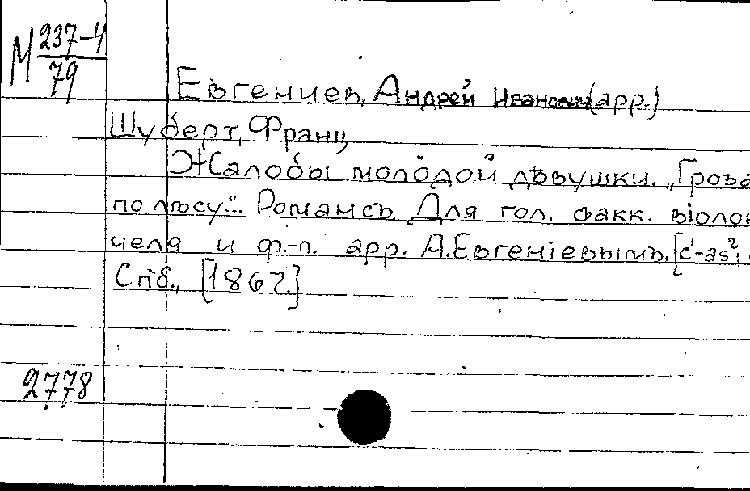 М 237-4
79
Евгениев, Андрей Иванович (арр.)
Шуберт, Франц
Жалобы молодой дѣвушки. „Гроза
по лѣсу"... Романсъ. Для гол. с акк. віолон
челя и ф.-п. арр. А. Евгеніевымъ. [c¹-as²;
Спб., [1867.]
2778